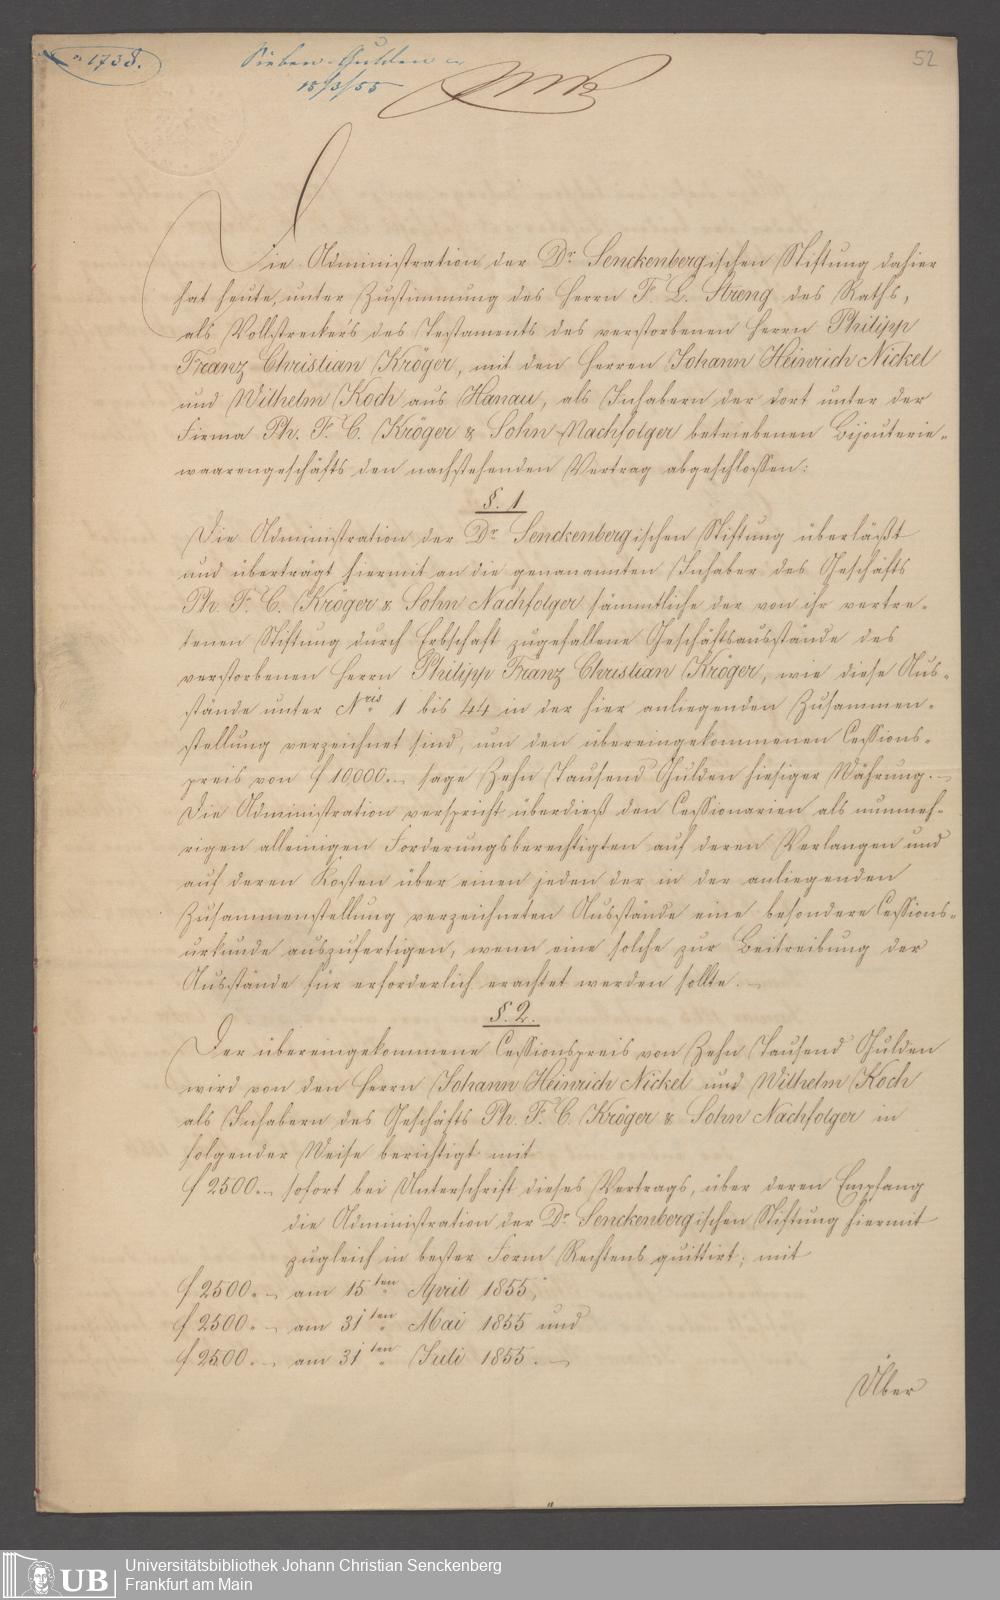 n 1738.
Sieben Gulden
15/3/55
52
Die Administration der Dr. Senckenbergischen Stiftung dahier
hat heute, unter Zustimmung des Herrn F. L. Streng des Raths,
als Vollstreckers des Testaments des verstorbenen Herrn Philipp
Franz Christian Kröger, mit den Herren Johann Heinrich Nickel
und Wilhelm Koch aus Hanau, als Inhabern der dort unter der
Firma Ph. F. C. Kröger & Sohn Nachfolger betriebenen Bijouterie-
waarengeschäfts den nachstehenden Vertrag abgeschlossen:
§. 1
Die Administration der Dr. Senckenbergischen Stiftung überläßt
und überträgt hiermit an die genanannten Inhaber des Geschäfts
Ph. F. C. Kröger & Sohn Nachfolger sämmtliche der von ihr vertre-
tenen Stiftung durch Erbschaft zugefallene Geschäftsausstände des
verstorbenen Herrn Philipp Franz Christian Kröger, wie diese Aus-
stände unter Nris 1 bis 44 in der hier anliegenden Zusammen-
stellung verzeichnet sind, um den übereingekommenen Cessions-
preis von f 10,000.- sage Zehn Tausend Gulden hiesiger Währung.-
Die Administration verspricht überdieß den Cessionarien als nunmeh-
rigen alleinigen Forderungsberechtigten auf deren Verlangen und
auf deren Kosten über einen jeden der in der anliegenden
Zusammenstellung verzeichneten Ausstände eine besondere Cessions-
urkunde auszufertigen, wenn eine solche zur Beitreibung der
Ausstände für erforderlich erachtet werden sollte.-
§. 2.
Der übereingekommene Cessionspreis von Zehn Tausend Gulden
wird von den Herrn Johann Heinrich Nickel und Wilhelm Koch
als Inhabern des Geschäfts Ph. F. C. Kröger & Sohn Nachfolger in
folgender Weise berichtigt mit
f 2500.- sofort bei Unterschrift dieses Vertrags, über deren Empfang
die Administration der Dr. Senckenbergischen Stiftung hiermit
zugleich in bester Form Rechtens quittirt; mit
f 2500.- am 15ten April 1855;
f 2500.- am 31ten Mai 1855 und
f 2500.- am 31ten Juli 1855.-
Über
UB
Universitätsbibliothek Johann Christian Senckenberg
Frankfurt am Main